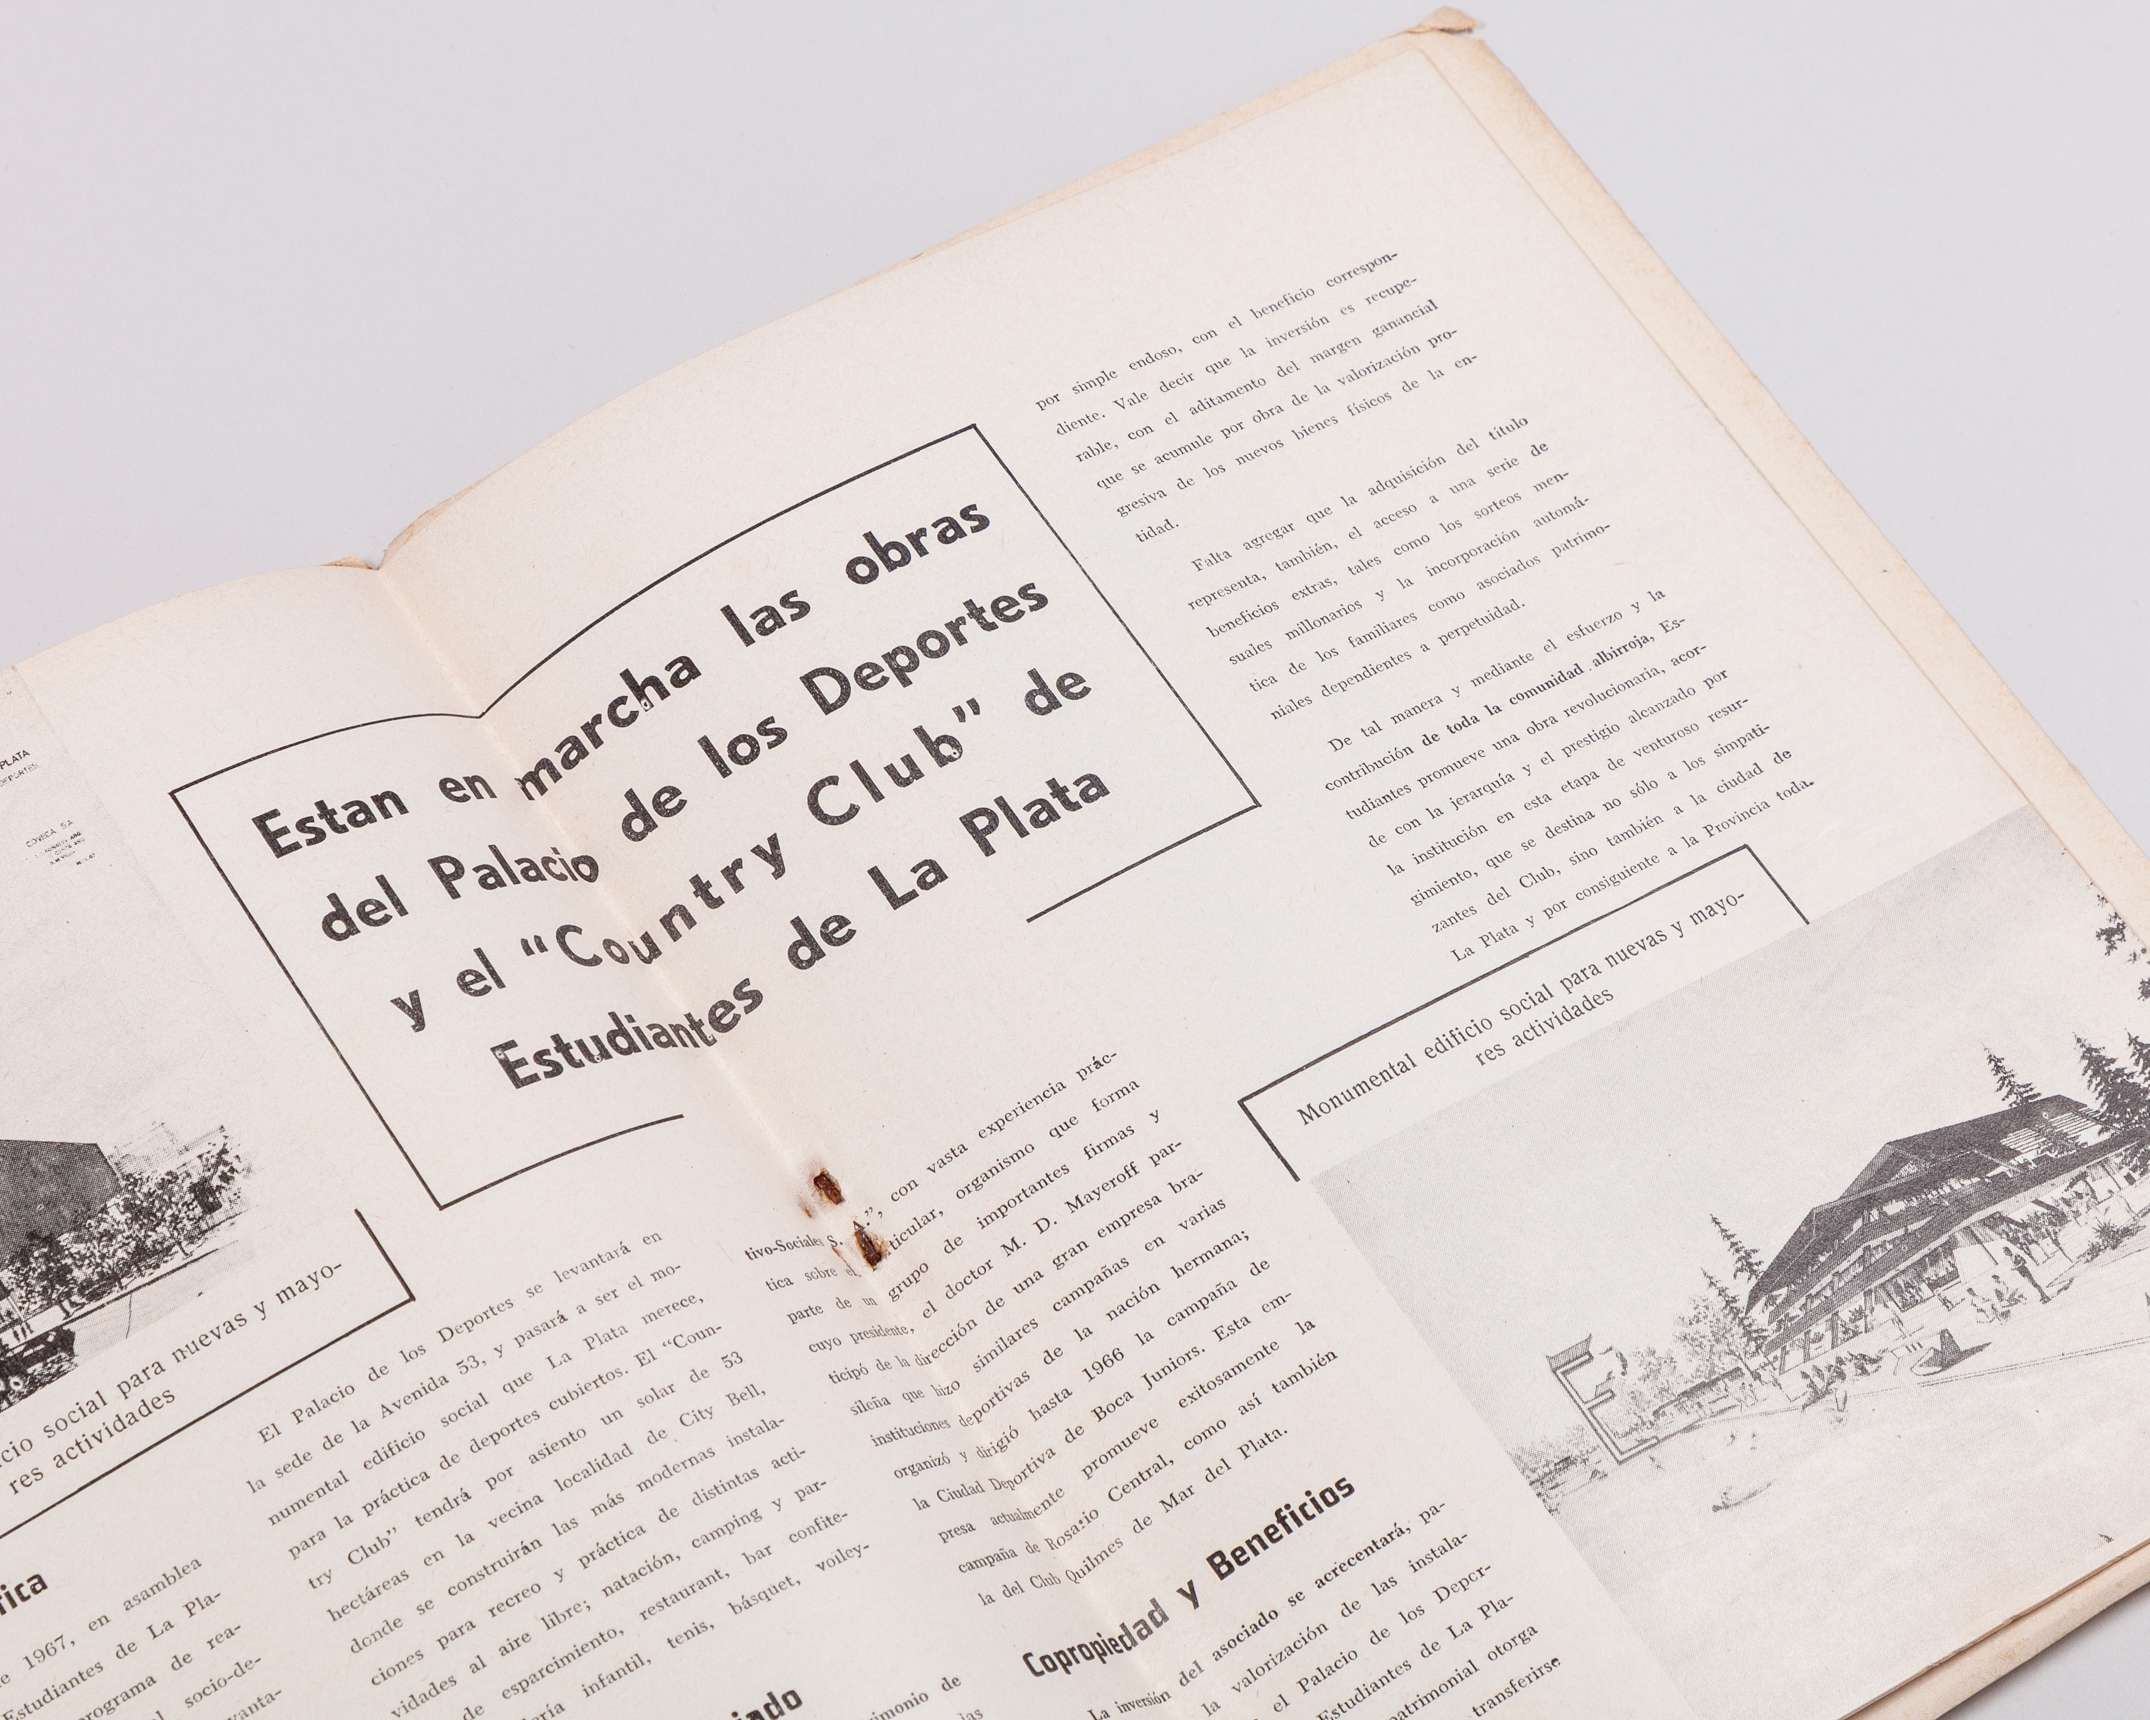 PLATA
DEPORTES
COVECA S.A.
Estan en marcha las obras
del Palacio de los Deportes
y el “Country Club” de
Estudiantes de La Plata
cio social para nuevas y mayo-
res actividades
fica
e 1967, en asamblea
Estudiantes de La Pla-
rograma de rea-
l socio-de-
vanta-
El Palacio de los Deportes se levantará en
la sede de la Avenida 53, y pasará a ser el mo-
numental edificio social que La Plata merece,
para la práctica de deportes cubiertos. El “Coun-
try Club” tendrá por asiento un solar de 53
hectáreas en la vecina localidad de City Bell,
donde se construirán las más modernas instala-
ciones para recreo y práctica de distintas acti-
vidades al aire libre; natación, camping y par-
de esparcimiento, restaurant, bar confite-
aría infantil, tenis, básquet, voiley-
iado
imonio de
las
tivo-Sociales S. A.”, con vasta experiencia prác-
tica sobre el ticular, organismo que forma
parte de un grupo de importantes firmas y
cuyo presidente, el doctor M. D. Mayeroff par-
ticipó de la dirección de una gran empresa bra-
sileña que hizo similares campañas en varias
instituciones deportivas de la nación hermana;
organizó y dirigió hasta 1966 la campaña de
la Ciudad Deportiva de Boca Juniors. Esta em-
presa actualmente promueve exitosamente la
campaña de Rosario Central, como así también
la del Club Quilmes de Mar del Plata.
Copropiedad y Beneficios
La inversión del asociado se acrecentará, pa-
la valorización de las instala-
el Palacio de los Depor-
Estudiantes de La Pla-
atrimonial otorga
transferirse
por simple endoso, con el beneficio correspon-
diente. Vale decir que la inversión es recupe-
rable, con el aditamento del margen ganancial
que se acumule por obra de la valorización pro-
gresiva de los nuevos bienes físicos de la en-
tidad.
Falta agregar que la adquisición del título
representa, también, el acceso a una serie de
beneficios extras, tales como los sorteos men-
suales millonarios y la incorporación automá-
tica de los familiares como asociados patrimo-
niales dependientes a perpetuidad.
De tal manera y mediante el esfuerzo y la
contribución de toda la comunidad albirroja, Es-
tudiantes promueve una obra revolucionaria, acor-
de con la jerarquía y el prestigio alcanzado por
la institución en esta etapa de venturoso resur-
gimiento, que se destina no sólo a los simpati-
zantes del Club, sino también a la ciudad de
La Plata y por consiguiente a la Provincia toda.
Monumental edificio social para nuevas y mayo-
res actividades